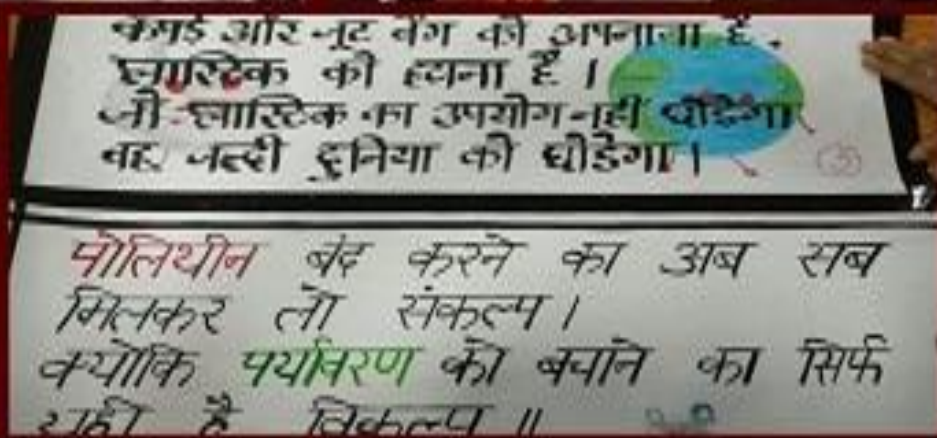 कपड़े और जूट बैग को अपनाना है,
प्लास्टिक को हटाना है ।
जो प्लास्टिक का उपयोग नहीं छोडेगा
वह जल्दी दुनिया को छोडेगा ।
पोलिथीन बंद करने का अब सब
मिलकर लो संकल्प ।
क्योंकि पर्यावरण को बचाने का सिर्फ
यही है विकल्प ॥